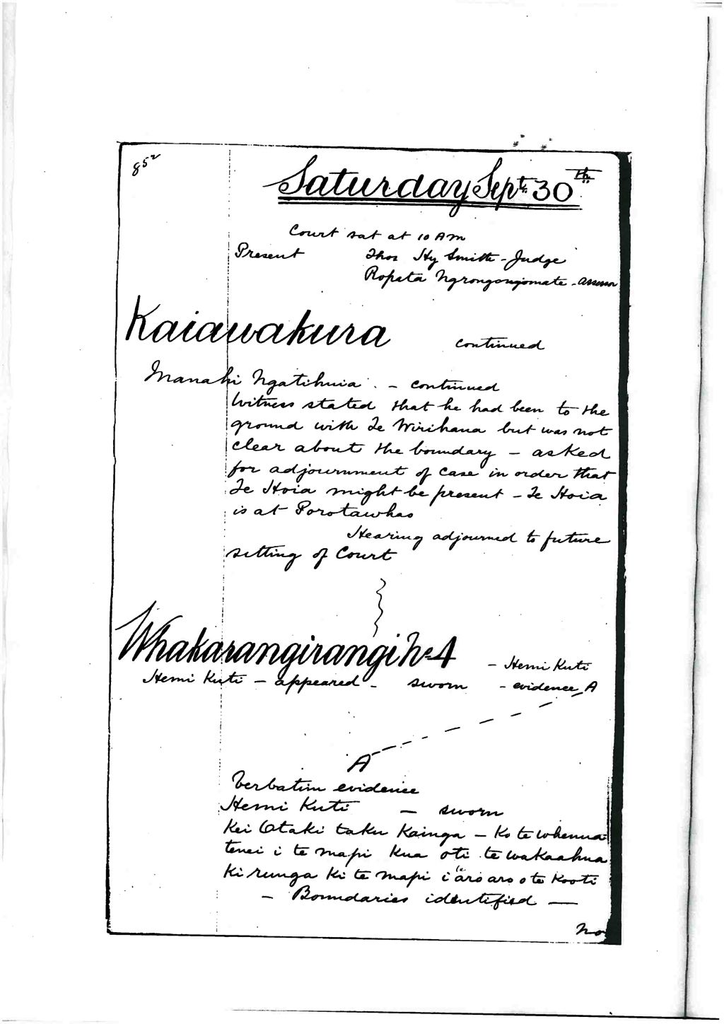 85
Saturday Sept. 30th
Court sat at 10 AM
Present Thos Hy Smith - Judge
Ropata Ngrongongomate - assessor
Kaiawakura continued
Manahi Ngatihuia. - continued
Witness stated that he had been to the
ground with Te Wirihana but was not
clear about the boundary - asked
for adjournment of case in order that
Te Hoia might be present - Te Hoia
is at Porotawhao
Hearing adjourned to future
sitting of Court
Whakarangirangi No 4 - Hemi Kuti
Hemi Kuti - appeared - sworn - evidence A
A
Verbatim evidence
Hemi Kuti - sworn
Kei Otaki taku Kainga - Ko te whenua
tenei i te mapi kua oti te wakaahua
ki runga ki te mapi i aro aro o te Kooti
- Boundaries identified -
No